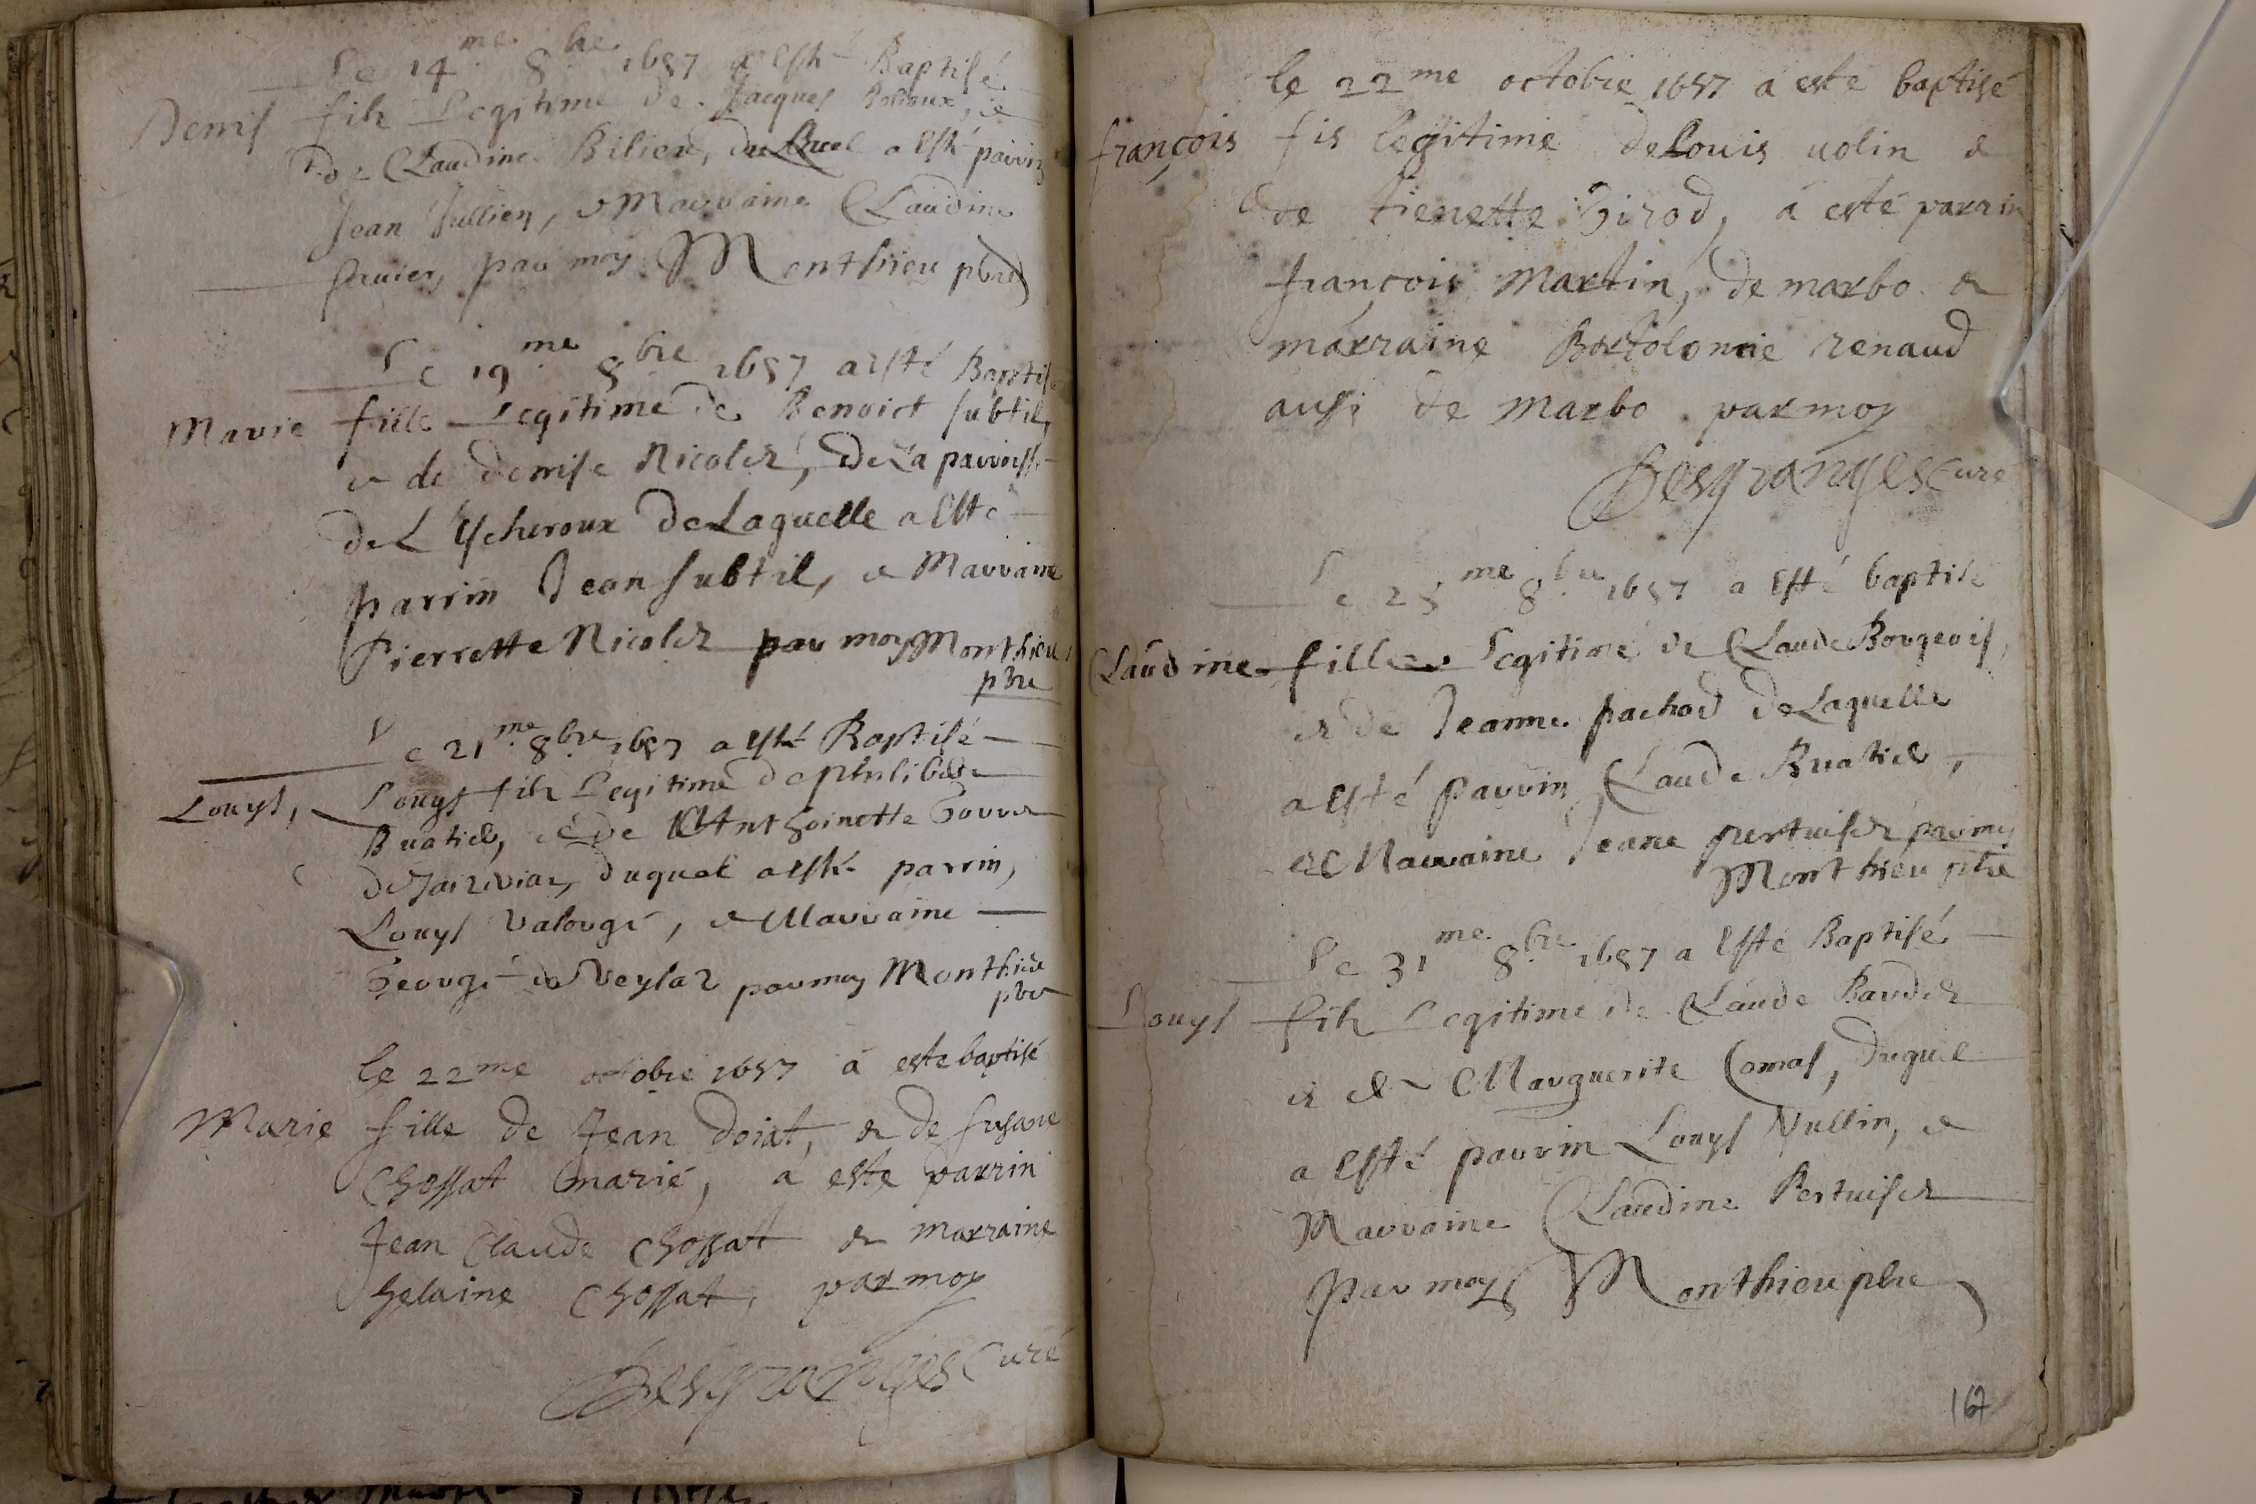 Le 14.me 8.bre 1657 a esté Baptisé
Denis fils Legitime de Jacques
& de Claudine a esté parrin
Jean Jullien, & Marraine Claudine
par moy Monthieu pbre
Le 19.me 8bre 1657 a esté Baptisé
Marie fille Legitime de Benoict Subtil,
& de Denise Nicolet, de La parroisse
de L'Escheroux de Laquelle a Esté
parrin Jean Subtil, & Marraine
Pierrette Nicolet par moy Monthieu
pbre
Le 21.me 8bre 1657 a esté Baptisé
Louys, Louys fils Legitime de philiberte
Buatier, & de Anthoinette
duquel a esté parrin,
Louys & Marraine
par moy Monthieu
pbre
le 22me octobre 1657 a este baptisé
Marie fille de Jean doiat, & de susane
Chossat marié, a este parrin
Jean Claude Chossat & marraine
helaine Chossat, par moy
Desgranges Curé
le 22me octobre 1657 a esté baptisé
françois fis legitime de Louis volin &
& de tienette Girod, a esté parrin
françois Martin, de marbo &
marraine Bartolomie renaud
ausi de marbo par moy
Desgranges Curé
Le 25me 8.bre 1657 a Esté baptise
Claudine fille Legitime de Claude Borgeois,
et de Jeanne pachod de Laquelle
a Esté parrin Claude Buatier,
et Marraine Jeane pertuiset par moy
Monthieu pbre
Le 31me 8.bre 1657 a Esté Baptisé
Louys fils Legitime de Claude Baudet
et de Marguerite Comas, duquel
a Esté parrin Louys Vullin, &
Marraine Claudine Pertuiset
par moy Monthieu pbre
167